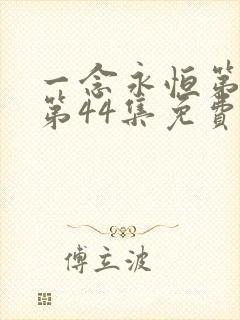 一念永恒第
第44集免費
傅立波